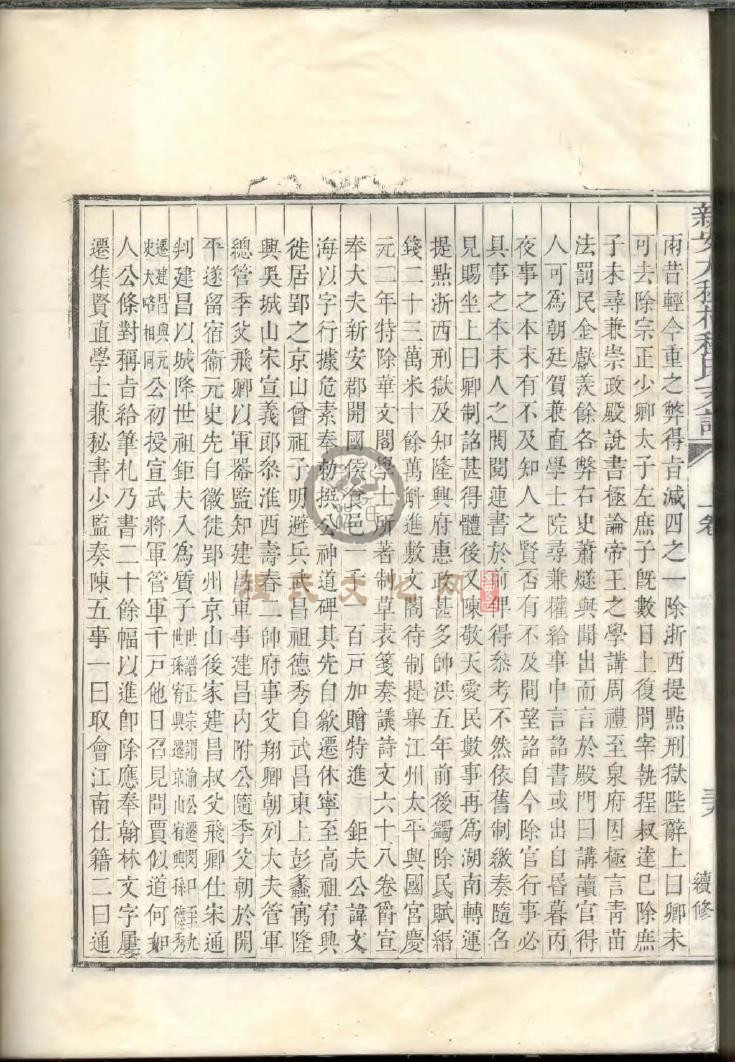 雨昔輕今重之弊得旨減四之一除浙西提㸃刑獄陛辭上曰卿未
可去除宗正少卿太子左庶子旣數日上復問宰執程叔達已除庶
子未尋兼崇政殿說書極論帝王之學講周禮至泉府因極言青苗
法罰民金獻羨餘各弊右史蕭燧與聞出而言於殿門曰講讀官得
人可爲朝廷賀兼直學士院尋兼權給事中言詔書或出自昏暮丙
夜事之本末有不及知人之賢否有不及問望詔自今除官行事必
具事之本末人之閥閱連書於前俾得叅考不然依舊制繳奏隨名
見賜坐上曰卿制誥甚得體後又陳敬天愛民數事再爲湖南轉運
提㸃浙西刑獄及知隆興府惠政甚多帥洪五年前後蠲除民賦緡
錢二十三萬米十餘萬斛進敷文閣待制提舉江州太平興國宮慶
元二年特除華文閣學士所著制草表箋奏議詩文六十八卷爵宣
奉大夫新安郡開國侯食邑一千一百戸加贈特進 鉅夫公諱文
海以字行據危素奏勅撰公神道碑其先自歙遷休寧至高祖宥興
徙居郢之京山曾祖子明避兵武昌祖德秀自武昌東上彭蠡寓隆
興吳城山宋宣義郎叅淮西壽春二帥府事父翔卿朝列大夫管軍
總管季父飛卿以軍器監知建昌軍事建昌内附公隨季父朝於開
平遂留宿衞元史先自徽徙郢州京山後家建昌叔父飛卿仕宋通
判建昌以城降世祖鉅夫入爲質子世譜正宗謂渝公遷閔口至九世孫宥興遷京山宥興孫德秀
遷建昌與元史大略相同公初授宣武將軍管軍千戸他日召見問賈似道何如
人公條對稱旨給筆札乃書二十餘幅以進卽除應奉翰林文字屢
遷集賢直學士兼秘書少監奏陳五事一曰取會江南仕籍二曰通
續修